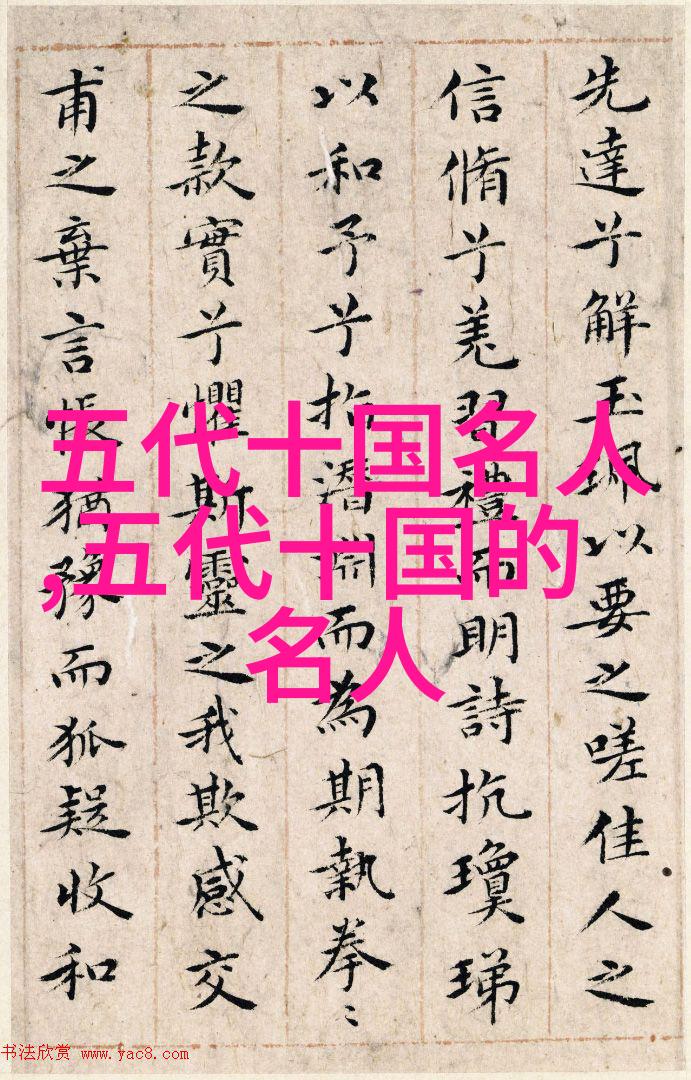 先達兮解玉珮以要之嗟佳人之
信脩兮羌習禮而明詩抗瓊珶
以和予兮指潛淵而為期執拳〻
之款實兮懼斯靈之我欺感交
甫之棄言悵猶豫而狐疑收和
五代十国名人
,五代十国的
名人
书法欣赏 www.yac8.com